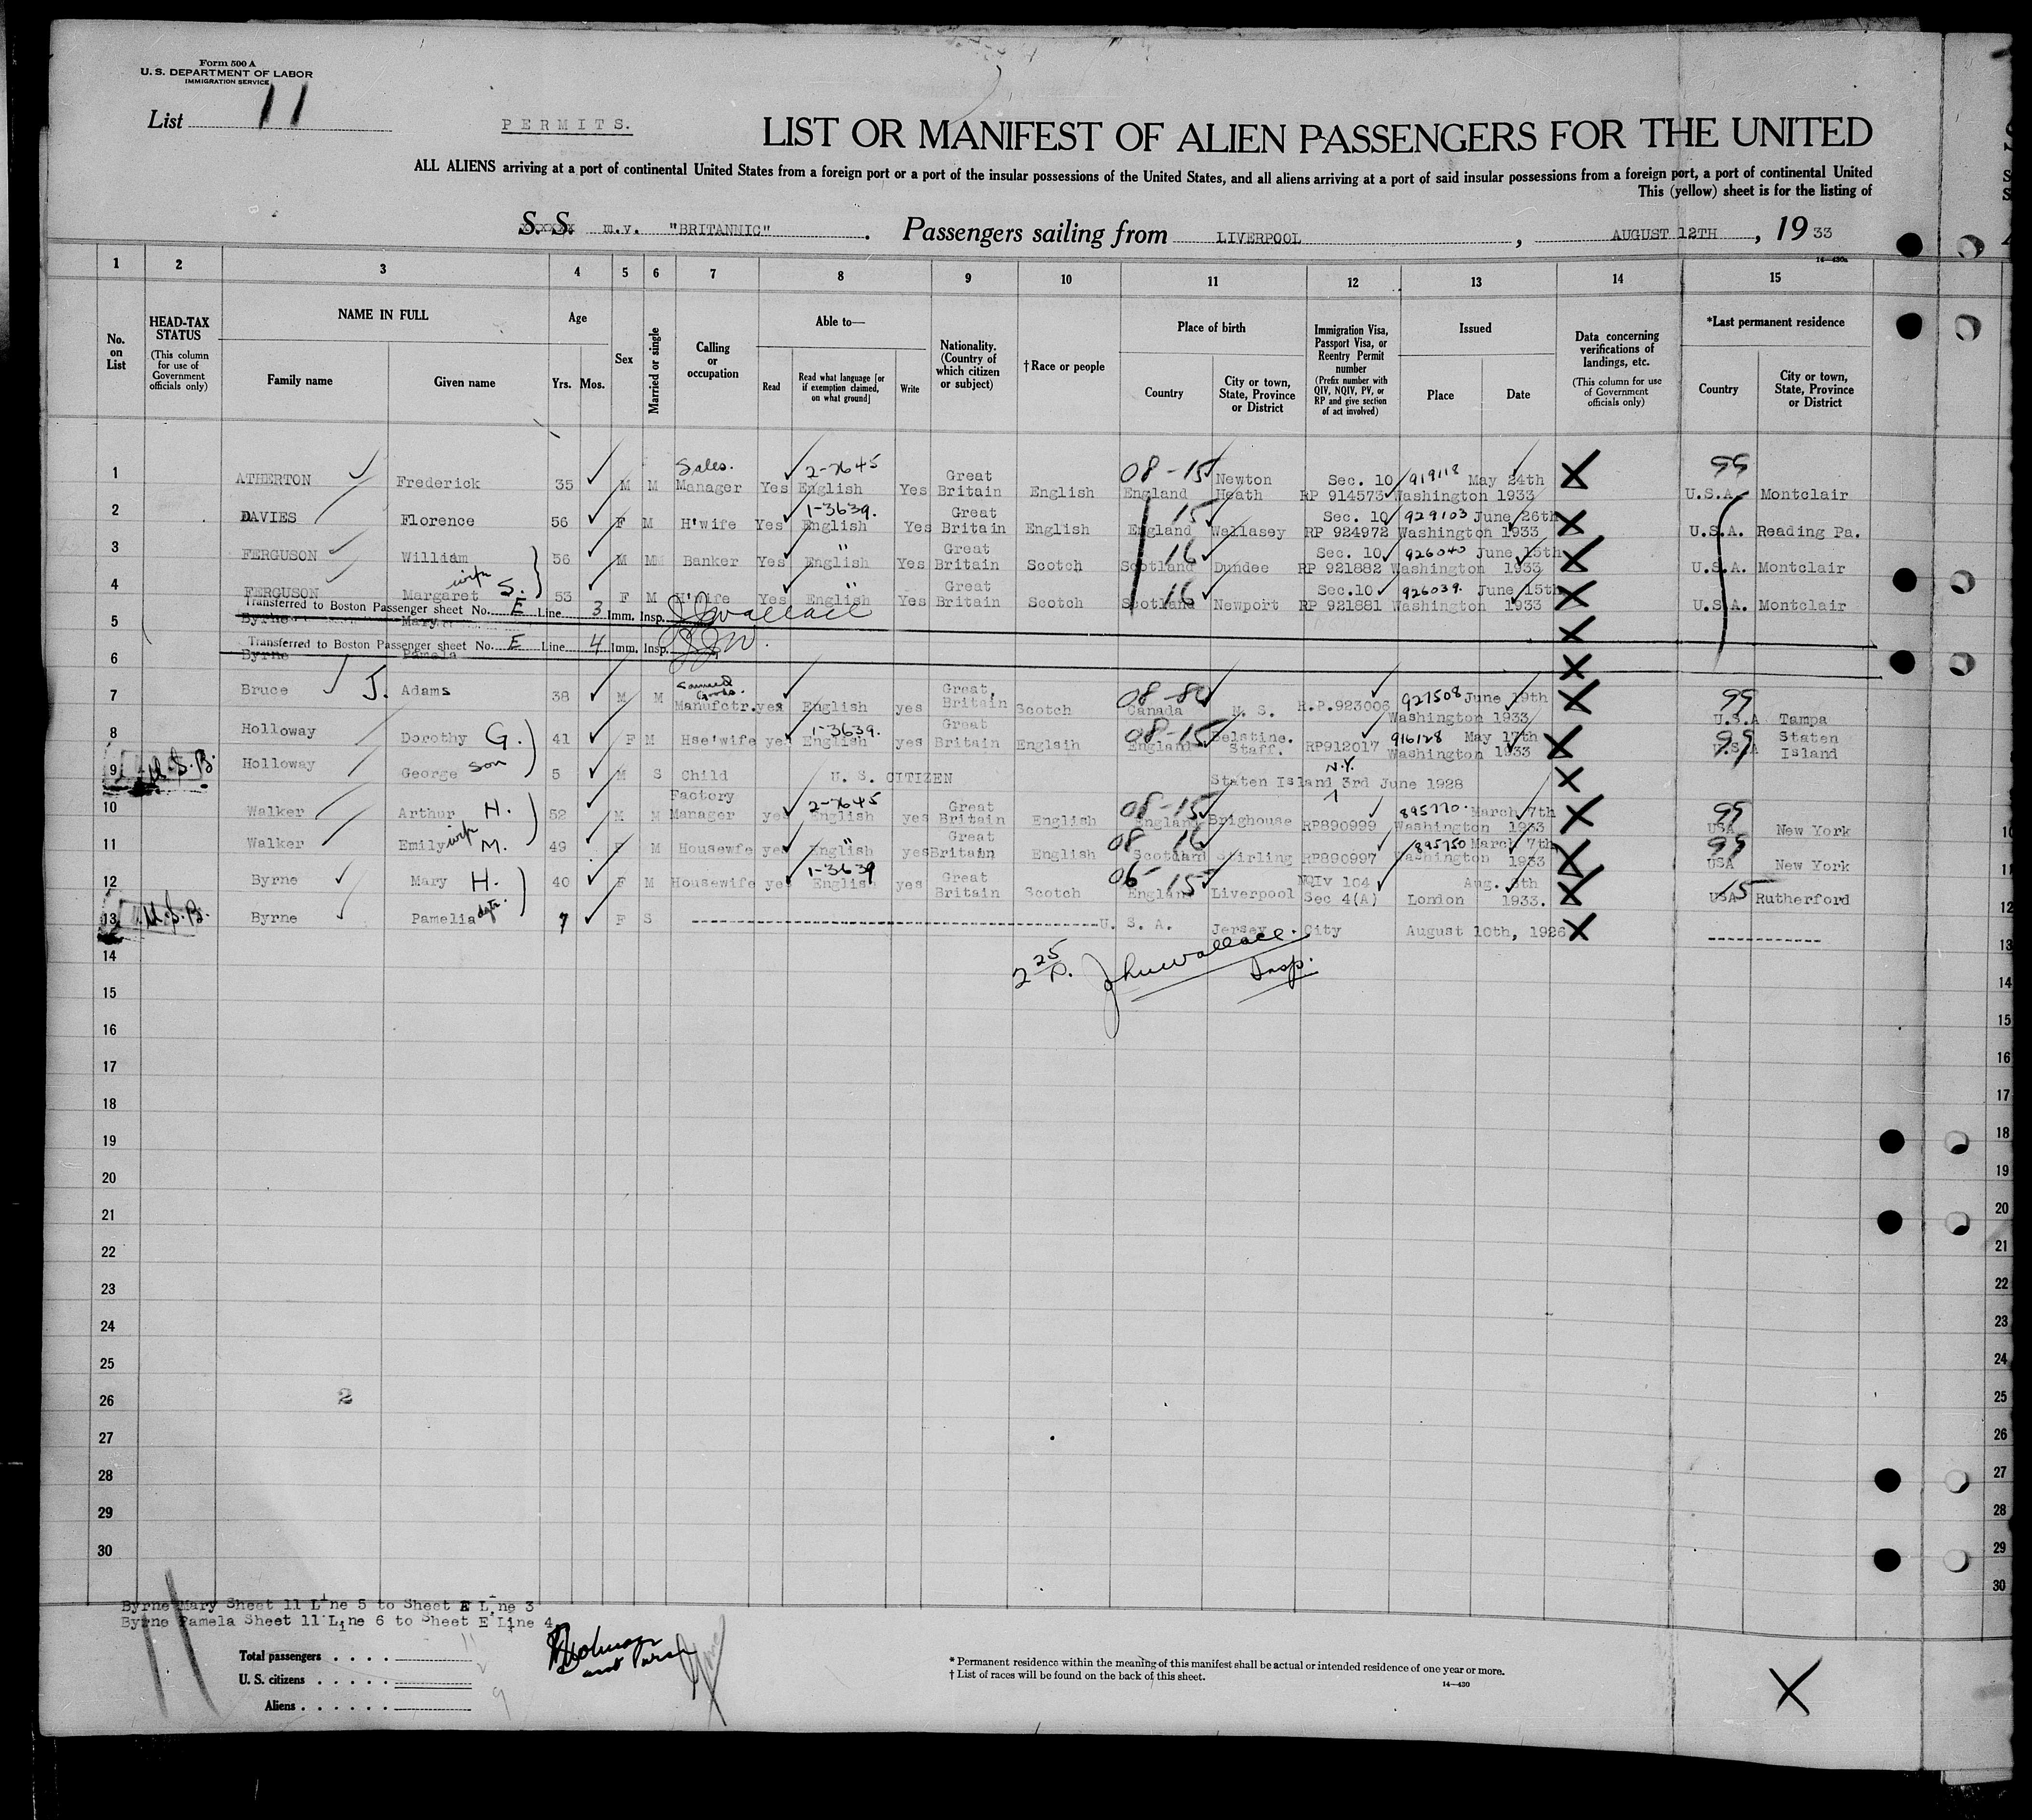 Form 500 A
U. S. DEPARTMENT OF LABOR
IMMIGRATION SERVICE
List 11
PERMITS.
LIST OR MANIFEST OF ALIEN PASSENGERS FOR THE UNITED
ALL ALIENS arriving at a port of continental United States from a foreign port or a port of the insular possessions of the United States, and all aliens arriving at a port of said insular possessions from a foreign port, a port of continental United
This (yellow) sheet is for the listing of
S. S. m.v. "BRITANNIC". Passengers sailing from LIVERPOOL, AUGUST 12TH, 19 33
14—430a
1 2 3 4 5 6 7 8 9 10 11 12 13 14 15
No. on List
HEAD-TAX STATUS
(This column for use of Government officials only)
NAME IN FULL
Family name
Given name
Age
Yrs. Mos.
Sex
Married or single
Calling or occupation
Able to—
Read
Read what language [or if exemption claimed, on what ground]
Write
Nationality. (Country of which citizen or subject)
†Race or people
Place of birth
Country
City or town, State, Province or District
Immigration Visa, Passport Visa, or Reentry Permit number
(Prefix number with QIV, NQIV, PV, or RP and give section of act involved)
Issued
Place
Date
Data concerning verifications of landings, etc.
(This column for use of Government officials only)
*Last permanent residence
Country
City or town, State, Province or District
1 ATHERTON Frederick 35 M M Sales. Manager Yes 2-7645 English Yes Great Britain English 08-15 England Newton Heath Sec. 10 RP 914573 919118 Washington May 24th 1933 X 99 U.S.A. Montclair
2 DAVIES Florence 56 F M H'wife Yes 1-3639. English Yes Great Britain English 15 England Wallasey Sec. 10 RP 924972 929103 Washington June 26th 1933 X U.S.A. Reading Pa.
3 FERGUSON William 56 M M Banker Yes " English Yes Great Britain Scotch 16 Scotland Dundee Sec. 10 RP 921882 926040 Washington June 15th 1933 X U.S.A. Montclair
4 FERGUSON Margaret wife S. 53 F M H'wife Yes " English Yes Great Britain Scotch 16 Scotland Newport Sec.10 RP 921881 926039. Washington June 15th 1933 X U.S.A. Montclair
Transferred to Boston Passenger sheet No. E Line 3 Imm. Insp. JJWallace
5 Byrne Mary X
Transferred to Boston Passenger sheet No. E Line 4 Imm. Insp. JJW.
6 Byrne Pamela X
7 Bruce J. Adams 38 M M Canned Goods. Manufctr. yes English yes Great Britain Scotch 08-86 Canada N. S. R.P.923006 927508 Washington June 19th 1933 X 99 U.S.A Tampa
8 Holloway Dorothy G. 41 F M Hse'wife yes 1-3639. English yes Great Britain Englsih 08-15 England Belstine. Staff. RP912017 916128 Washington May 17th 1933 X 99 U.S.A Staten Island
9 U.S.B. Holloway George son 5 M S Child U. S. CITIZEN Staten Island N.Y. 3rd June 1928 X
10 Walker Arthur H. 52 M M Factory Manager yes 2-7645 English yes Great Britain English 08-15 England Brighouse RP890999 895770. Washington March 7th 1933 X 99 USA New York
11 Walker Emily wife M. 49 F M Housewfe yes " English yes Great Britain English 08 16 Scotland Stirling RP890997 895750 Washington March 7th, 1933 X 99 USA New York
12 Byrne Mary H. 40 F M Housewife yes 1-3639 English yes Great Britain Scotch 06-15 England Liverpool NQIv 104 Sec 4(A) London Aug. 8th 1933. X 15 USA Rutherford
13 U.S.B. Byrne Pamelia dgtr. 7 F S U. S. A. Jersey City August 10th, 1926 X
2 25 P. JhnWallace. Insp.
14
15
16
17
18
19
20
21
22
23
24
25
26 2
27
28
29
30
Byrne Mary Sheet 11 Line 5 to Sheet E Line 3
Byrne Pamela Sheet 11 Line 6 to Sheet E Line 4
Total passengers . . . . 11
U. S. citizens . . . . .
Aliens . . . . . . 9
* Permanent residence within the meaning of this manifest shall be actual or intended residence of one year or more.
† List of races will be found on the back of this sheet.
14—430
X